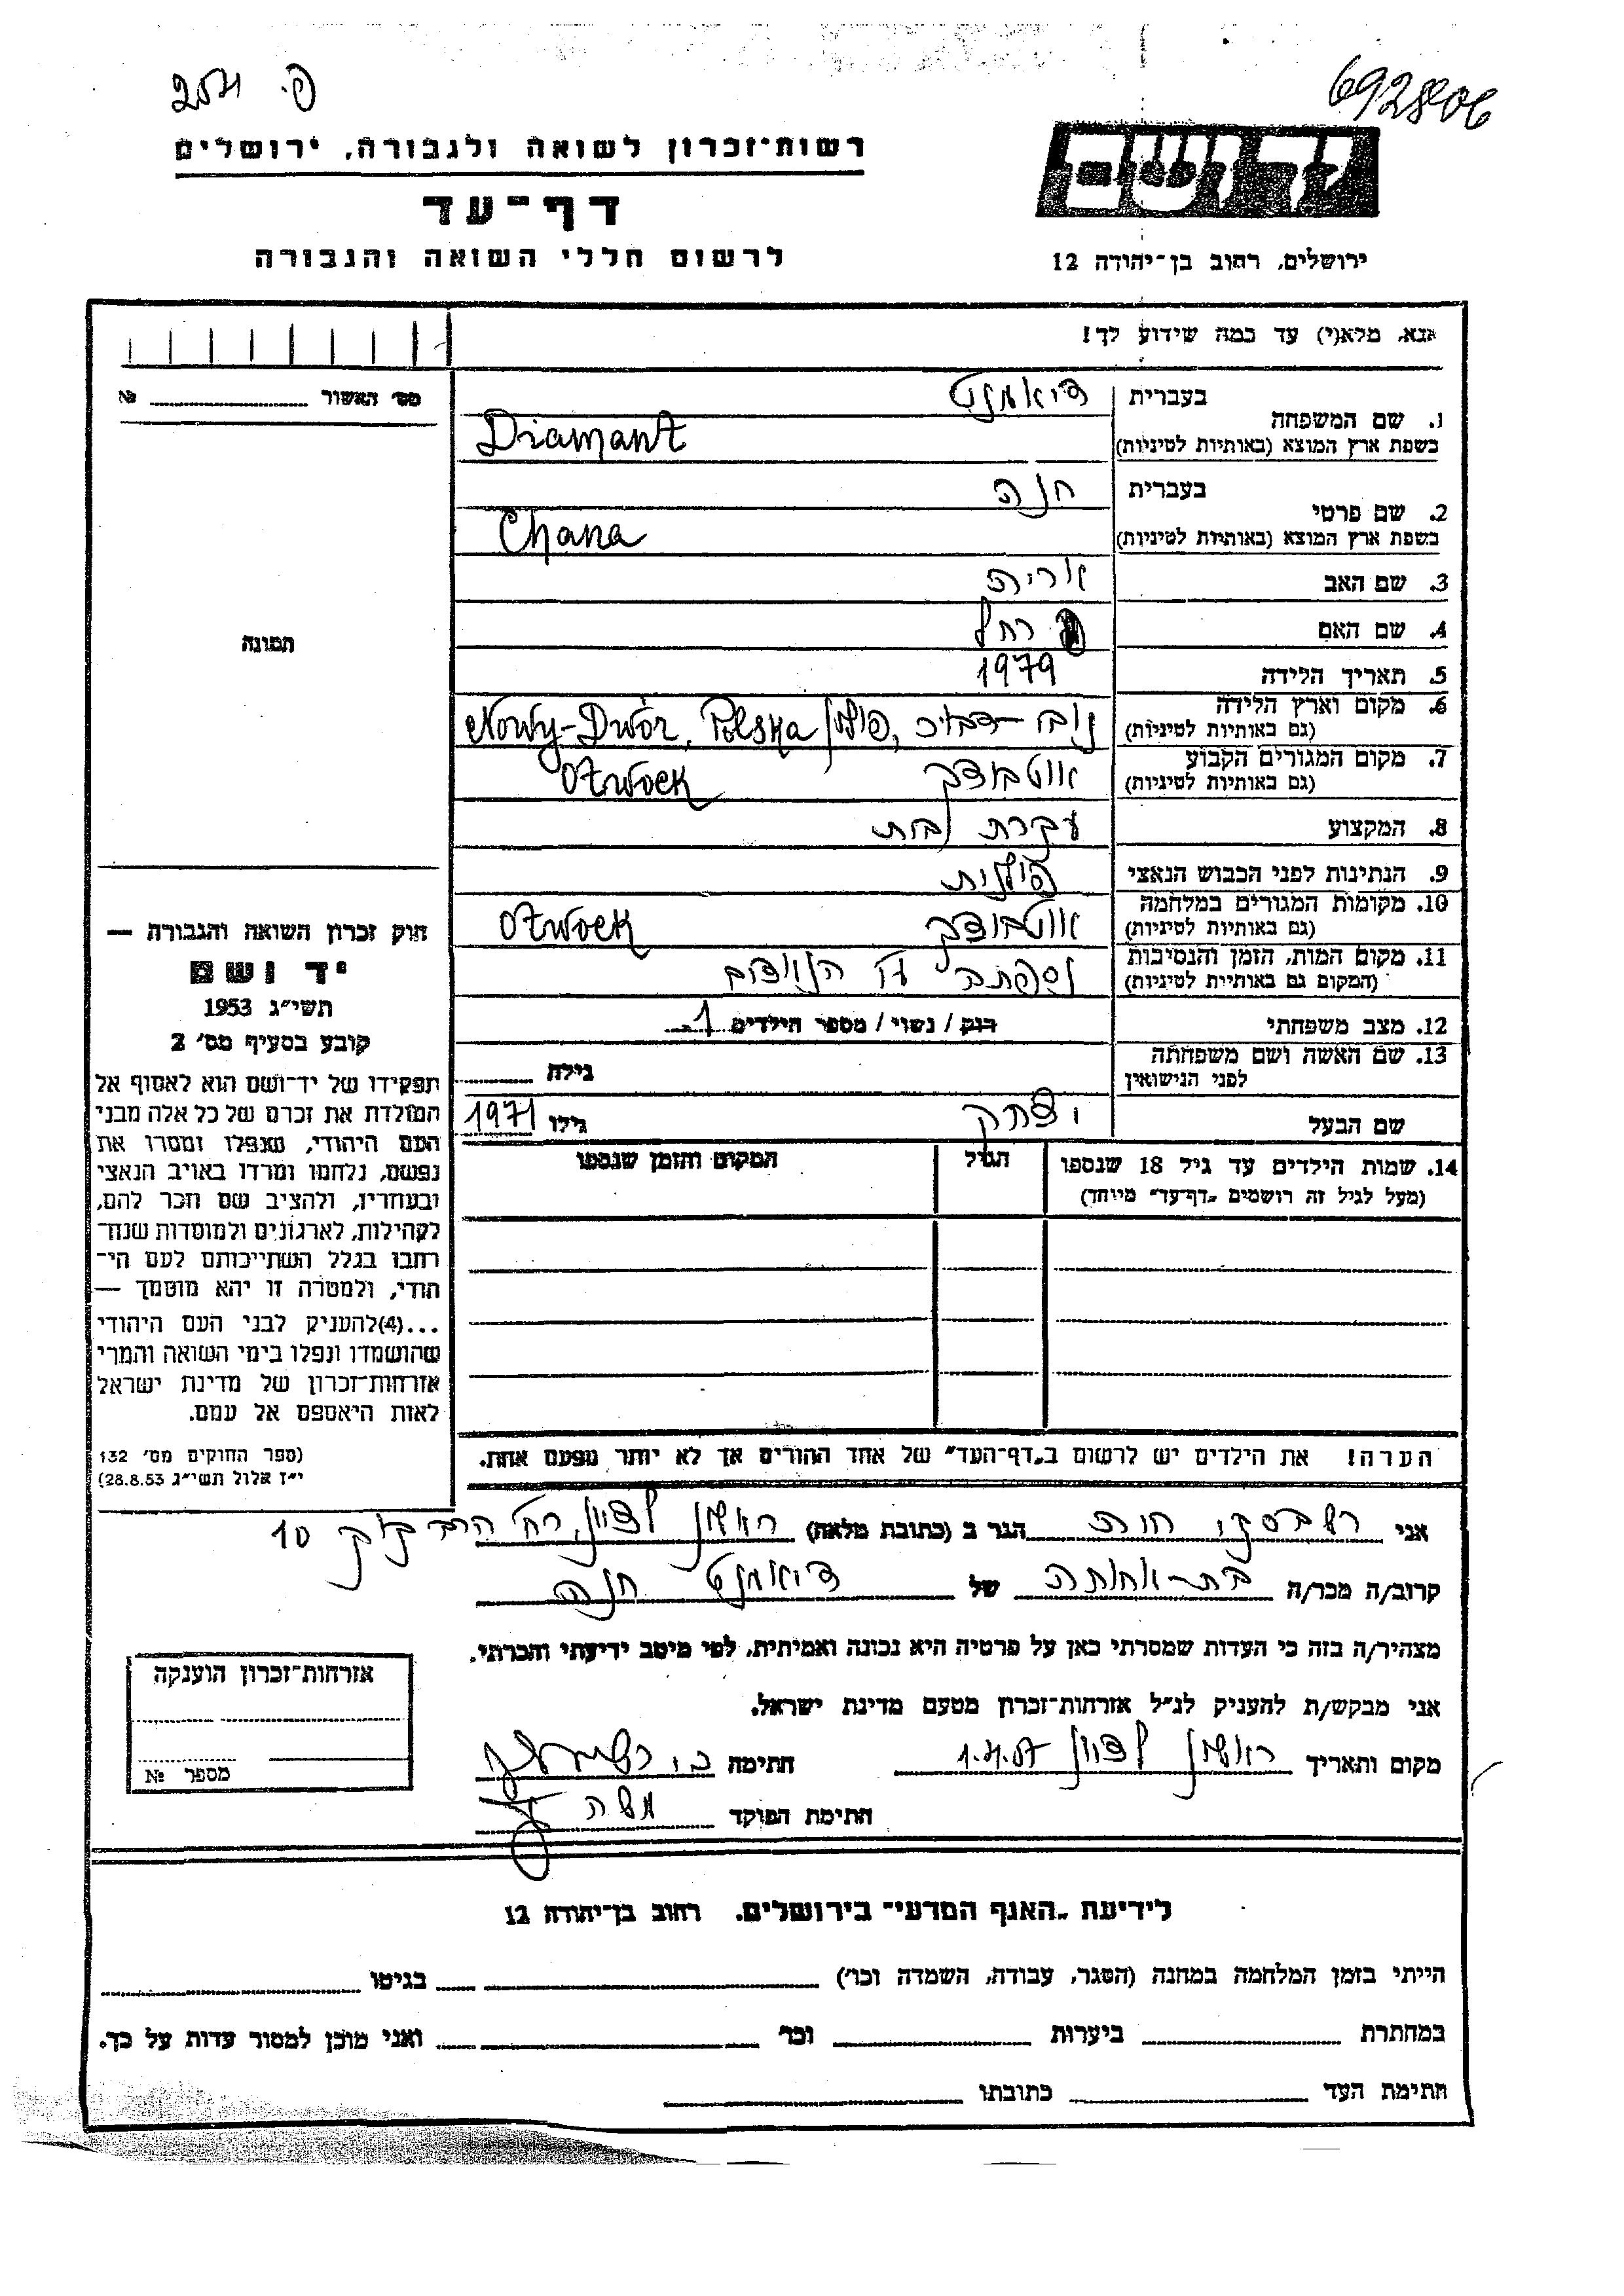 692806
פ. 2571
יד ושם
רשות־זכרון לשואה ולגבורה, ירושלים
דף־עד
לרשום חללי השואה והגבורה
ירושלים, רחוב בן־יהודה 12
אנא, מלא(י) עד כמה שידוע לך!
מס׳ האשור № 
1. שם המשפחה
בעברית דיאמנט
בשפת ארץ המוצא (באותיות לטיניות) Diamant
2. שם פרטי
בעברית חנה
בשפת ארץ המוצא (באותיות לטיניות) Chana
3. שם האב אריה
4. שם האם רחל
5. תאריך הלידה 1979
6. מקום וארץ הלידה
(גם באותיות לטיניות) פולין, Nowy-Dwór, Polska
7. מקום המגורים הקבוע
(גם באותיות לטיניות) אוטבוצק Otwock
8. המקצוע עקרת בית
9. הנתינות לפני הכבוש הנאצי פולנית
10. מקומות המגורים במלחמה
(גם באותיות לטיניות) אוטבוצק Otwock
11. מקום המות, הזמן והנסיבות
(המקום גם באותיית לטיניות) נספתה ע״י הנאצים
12. מצב משפחתי רוק / נשוי / מספר הילדים 1
13. שם האשה ושם משפחתה
לפני הנישואין גילה
שם הבעל יצחק גילו 1971
14. שמות הילדים עד גיל 18 שנספו
(מעל לגיל זה רושמים „דף־עד״ מיוחד)
הגיל
המקום והזמן שנספו
הערה! את הילדים יש לרשום ב„דף־העד״ של אחד ההורים אך לא יותר מפעם אחת.
תמונה
חוק זכרון השואה והגבורה —
יד ושם
תשי״ג 1953
קובע בסעיף מס׳ 2
תפקידו של יד־ושם הוא לאסוף אל
המולדת את זכרם של כל אלה מבני
העם היהודי, שנפלו ומסרו את
נפשם, נלחמו ומרדו באויב הנאצי
ובעוזריו, ולהציב שם וזכר להם,
לקהילות, לארגונים ולמוסדות שנח־
רבו בגלל השתייכותם לעם הי־
הודי, ולמטרה זו יהא מוסמך —
...(4)להעניק לבני העם היהודי
שהושמדו ונפלו בימי השואה והמרי
אזרחות־זכרון של מדינת ישראל
לאות היאספם אל עמם.
(ספר החוקים מס׳ 132
י״ז אלול תשי״ג 28.8.53)
אני חוה הגר ב (כתובת מלאה) ראשון לציון, רח׳ הרב קוק 10
קרוב/ה מכר/ה בת-אחותה של דיאמנט חנה
מצהיר/ה בזה כי העדות שמסרתי כאן על פרטיה היא נכונה ואמיתית, לפי מיטב ידיעתי והכרתי.
אני מבקש/ת להעניק לנ״ל אזרחות־זכרון מטעם מדינת ישראל.
מקום ותאריך ראשון לציון חתימה
חתימת הפוקד משה
אזרחות־זכרון הוענקה
מספר №
לידיעת „האגף המדעי״ בירושלים. רחוב בן־יהודה 12
הייתי בזמן המלחמה במחנה (הסגר, עבודה, השמדה וכו׳) בגיטו
במחתרת ביערות וכו׳ ואני מוכן למסור עדות על כך.
חתימת העד כתובתו